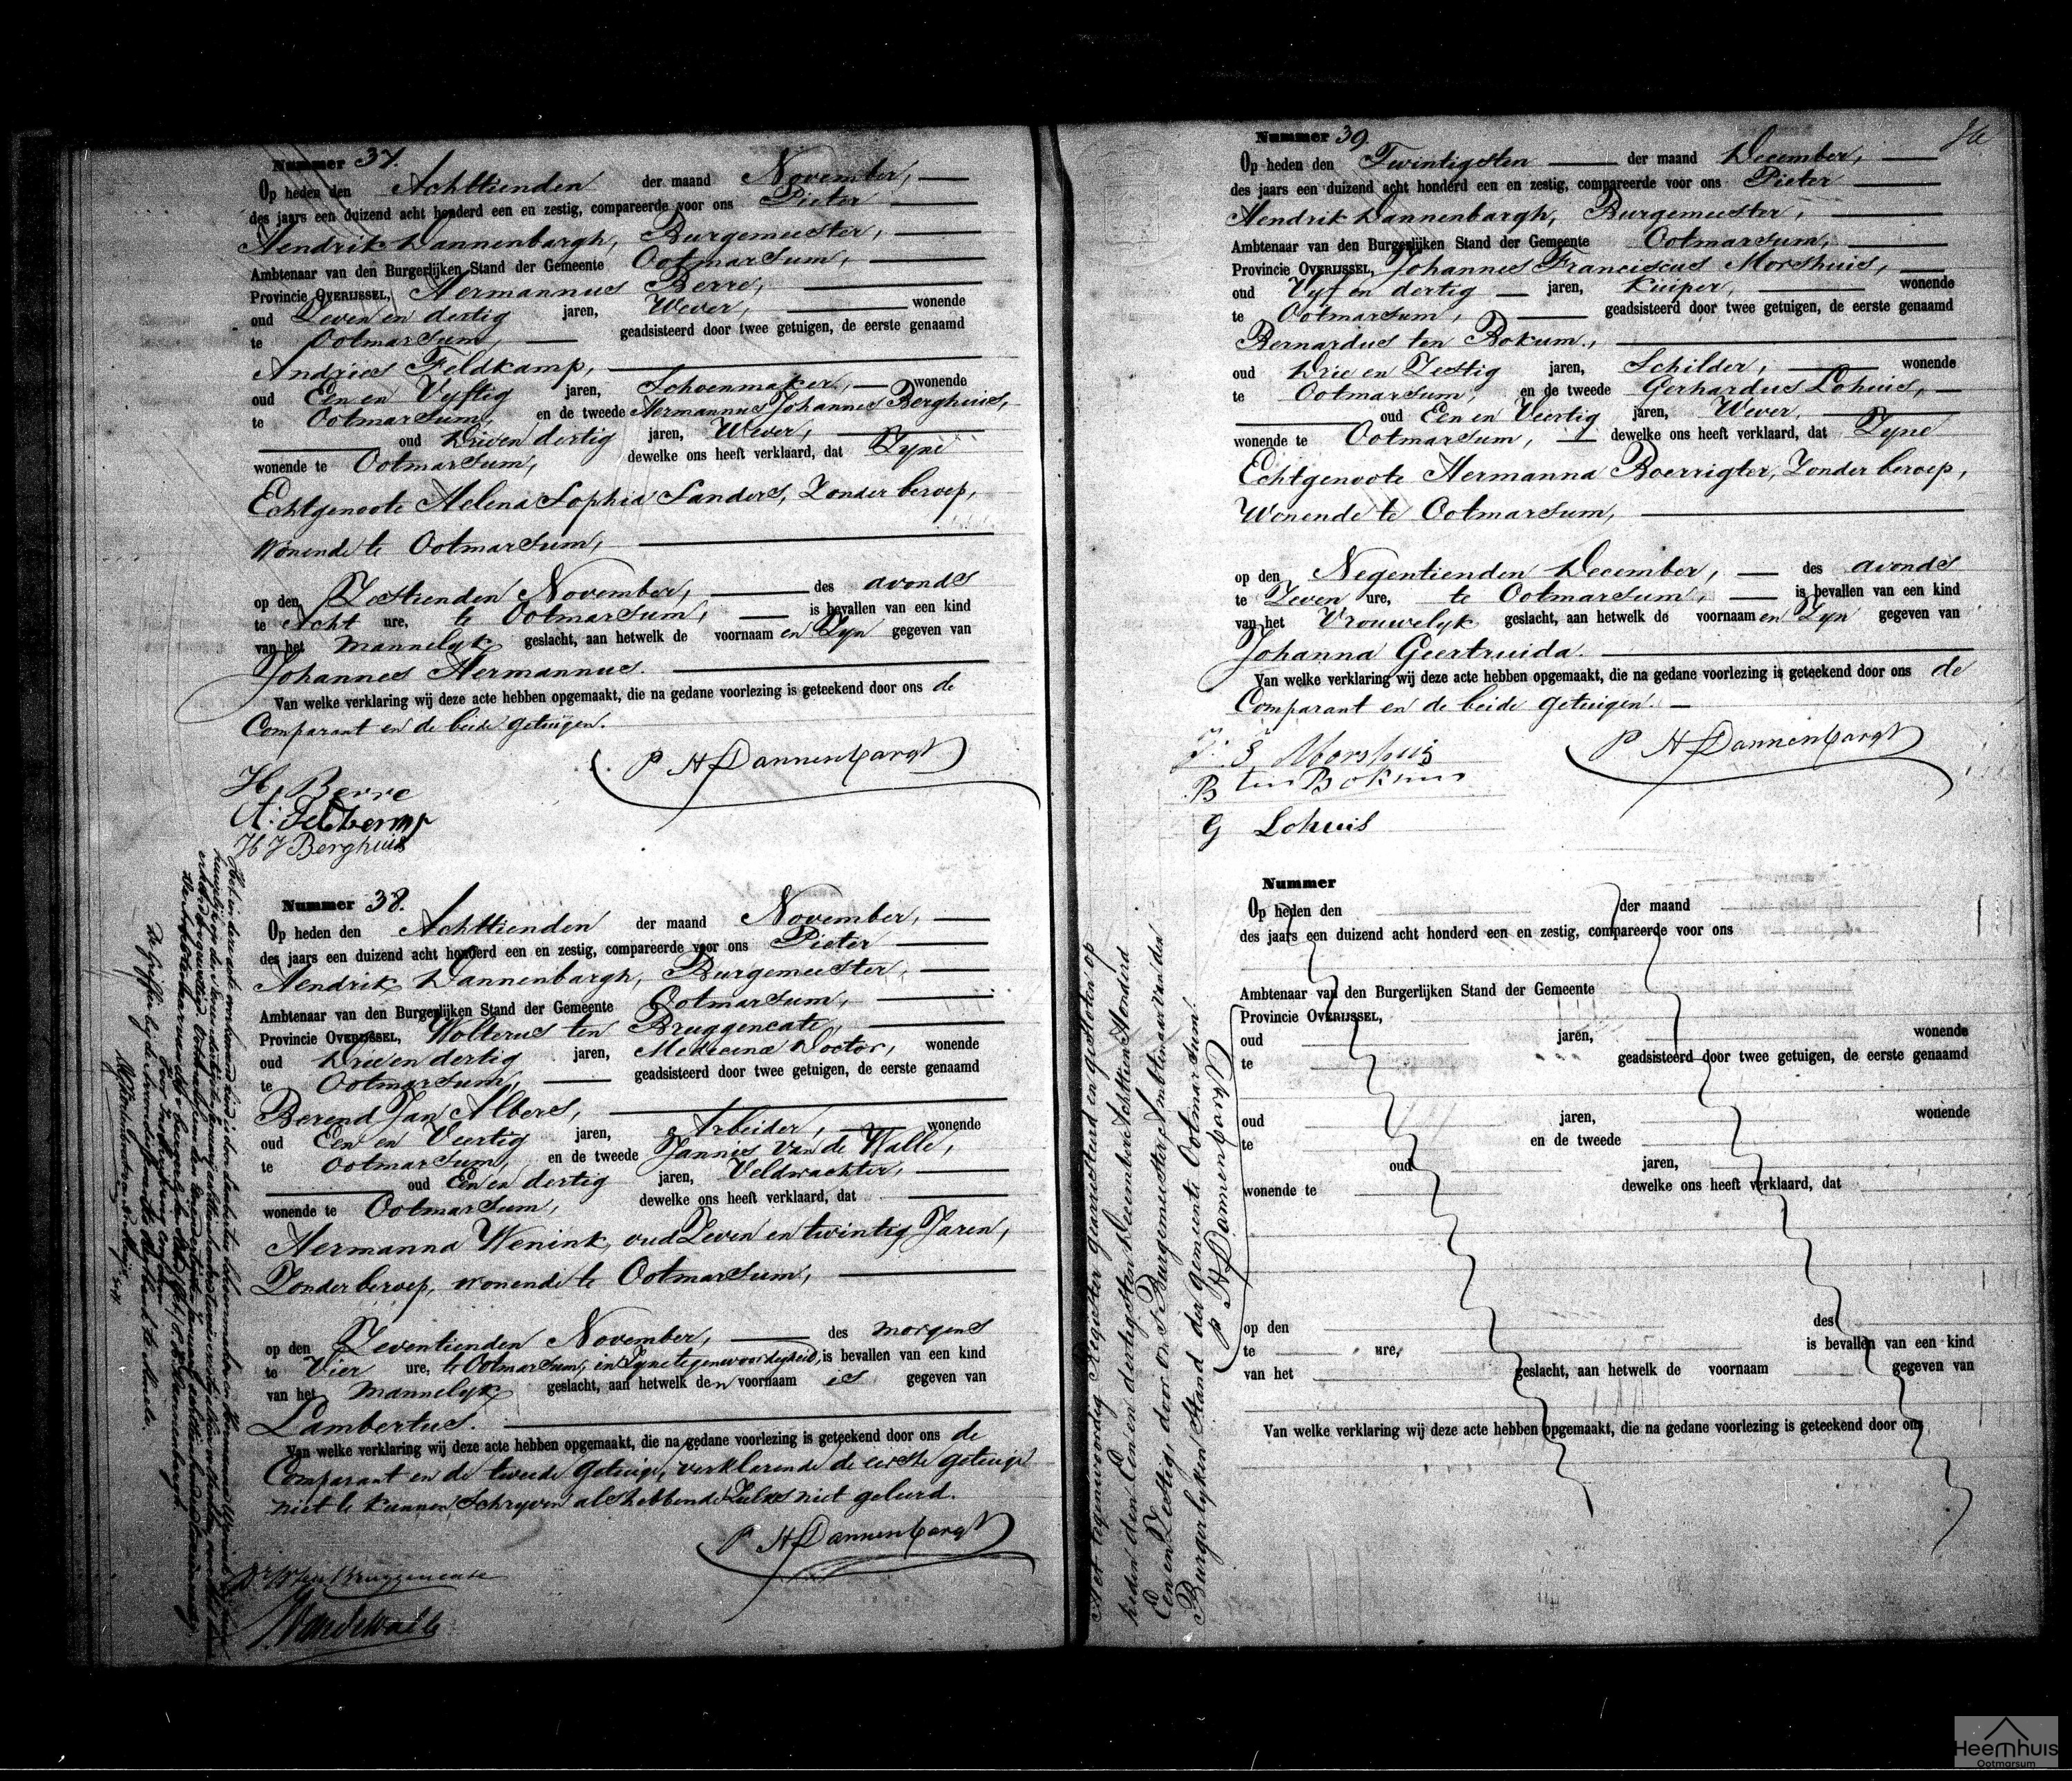 Nummer 37.
Op heden den Achttienden der maand November,
des jaars een duizend acht honderd een en zestig, compareerde voor ons Pieter
Hendrik Dannenbargh, Burgemeester,
Ambtenaar van den Burgerlijken Stand der Gemeente Ootmarsum,
Provincie OVERIJSSEL, Hermannus Berre,
oud Zeven en dertig jaren, Wever, wonende
te Ootmarsum, geadsisteerd door twee getuigen, de eerste genaamd
Andries Feldkamp,
oud Een en Vyftig jaren, Schoenmaker, wonende
te Ootmarsum, en de tweede Hermannus Johannes Berghuis,
oud Drie en dertig jaren, Wever,
wonende te Ootmarsum, dewelke ons heeft verklaard, dat Zyne
Echtgenoote Helena Sophia Sanders, Zonder beroep,
Wonende te Ootmarsum,
op den Zestienden November, des avonds
te Acht ure, te Ootmarsum, is bevallen van een kind
van het Mannelyk geslacht, aan hetwelk de voornaam en Zyn gegeven van
Johannes Hermannus.
Van welke verklaring wij deze acte hebben opgemaakt, die na gedane voorlezing is geteekend door ons de
Comparant en de beide getuigen.
P H Dannenbargh
H. Berre
A: Feldkamp
H J Berghuis
Nummer 38.
Op heden den Achttienden der maand November,
des jaars een duizend acht honderd een en zestig, compareerde voor ons Pieter
Hendrik Dannenbargh, Burgemeester,
Ambtenaar van den Burgerlijken Stand der Gemeente Ootmarsum,
Provincie OVERIJSSEL, Wolterus ten Bruggencate,
oud Drie en dertig jaren, Medecinae Doctor, wonende
te Ootmarsum, geadsisteerd door twee getuigen, de eerste genaamd
Berend Jan Albers,
oud Een en Veertig jaren, Arbeider, wonende
te Ootmarsum, en de tweede Jannis van de Walle,
oud Een en dertig jaren, Veldwachter,
wonende te Ootmarsum, dewelke ons heeft verklaard, dat
Hermanna Wenink, oud Zeven en twintig Jaren,
Zonder beroep, wonende te Ootmarsum,
op den Zeventienden November, des morgens
te Vier ure, te Ootmarsum, in Zyne tegenwoordigheid, is bevallen van een kind
van het Mannelyk geslacht, aan hetwelk den voornaam is gegeven van
Lambertus.
Van welke verklaring wij deze acte hebben opgemaakt, die na gedane voorlezing is geteekend door ons de
Comparant en de tweede getuige, verklarende de eerste getuige
niet te kunnen Schryven als hebbende Zulks niet geleerd.
P H Dannenbargh
Dr W ten Bruggencate
J Van de Walle
Nummer 39.
Op heden den Twintigsten der maand December,
des jaars een duizend acht honderd een en zestig, compareerde voor ons Pieter
Hendrik Dannenbargh, Burgemeester,
Ambtenaar van den Burgerlijken Stand der Gemeente Ootmarsum,
Provincie OVERIJSSEL, Johannes Franciscus Morshuis,
oud Vyf en dertig jaren, Kuiper, wonende
te Ootmarsum, geadsisteerd door twee getuigen, de eerste genaamd
Bernardus ten Bokum,
oud Drie en Zestig jaren, Schilder, wonende
te Ootmarsum, en de tweede Gerhardus Lohuis,
oud Een en Veertig jaren, Wever,
wonende te Ootmarsum, dewelke ons heeft verklaard, dat Zyne
Echtgenoote Hermanna Boerrigter, Zonder beroep,
Wonende te Ootmarsum,
op den Negentienden December, des avonds
te Zeven ure, te Ootmarsum, is bevallen van een kind
van het Vrouwelyk geslacht, aan hetwelk de voornaam en Zyn gegeven van
Johanna Geertruida.
Van welke verklaring wij deze acte hebben opgemaakt, die na gedane voorlezing is geteekend door ons de
Comparant en de beide getuigen.
P H Dannenbargh
J. F. Morshuis
B ten Bokum
G Lohuis
Nummer
Op heden den der maand
des jaars een duizend acht honderd een en zestig, compareerde voor ons
Ambtenaar van den Burgerlijken Stand der Gemeente
Provincie OVERIJSSEL,
oud jaren, wonende
te geadsisteerd door twee getuigen, de eerste genaamd
oud jaren, wonende
te en de tweede
oud jaren,
wonende te dewelke ons heeft verklaard, dat
op den des
te ure, is bevallen van een kind
van het geslacht, aan hetwelk de voornaam gegeven van
Van welke verklaring wij deze acte hebben opgemaakt, die na gedane voorlezing is geteekend door ons
Het tegenwoordig Register gearresteerd en gesloten op
heden den Een en dertigsten December Achttien Honderd
Een en Zestig, door ons Burgemeester, Ambtenaar van den
Burgerlyken Stand der gemeente Ootmarsum.
P H Dannenbargh
Heemhuis
Ootmarsum